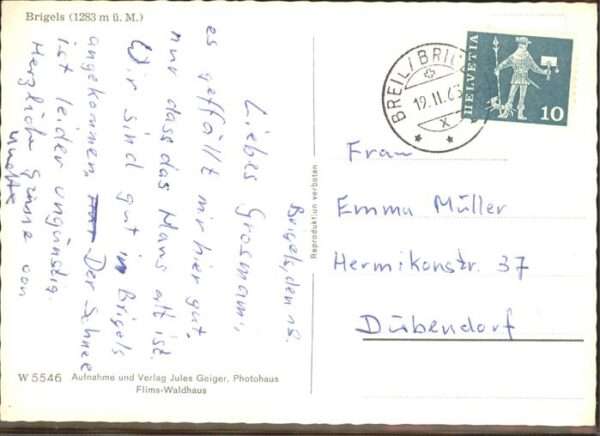 Brigels (1283 m ü. M.)
Brigels, den 18.
Liebes Grosmami,
es gefällt mir hier gut,
nur dass das Haus alt ist.
Wir sind gut in Brigels
angekommen. Der Schnee
ist leider ungünstig.
Herzliche Grüsse von
W 5546 Aufnahme und Verlag Jules Geiger, Photohaus
Flims-Waldhaus
Reproduktion verboten
BREIL/BRIG
19.II.63
X
HELVETIA
10
Frau
Emma Müller
Hermikonstr. 37
Dübendorf